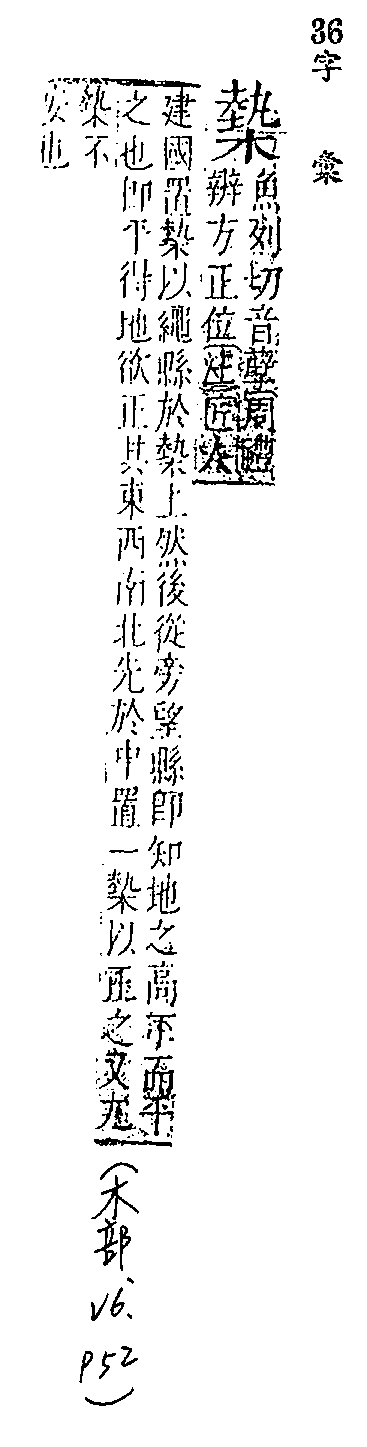 36字 彙
槷
魚列切音孽周禮
辨方正位注匠人
建國置槷以繩縣於槷上然後從旁望縣即知地之高下而平
之也即平得地欲正其東西南北先於中置一槷以 之又
槷不
安也
(木部 V6. P52)